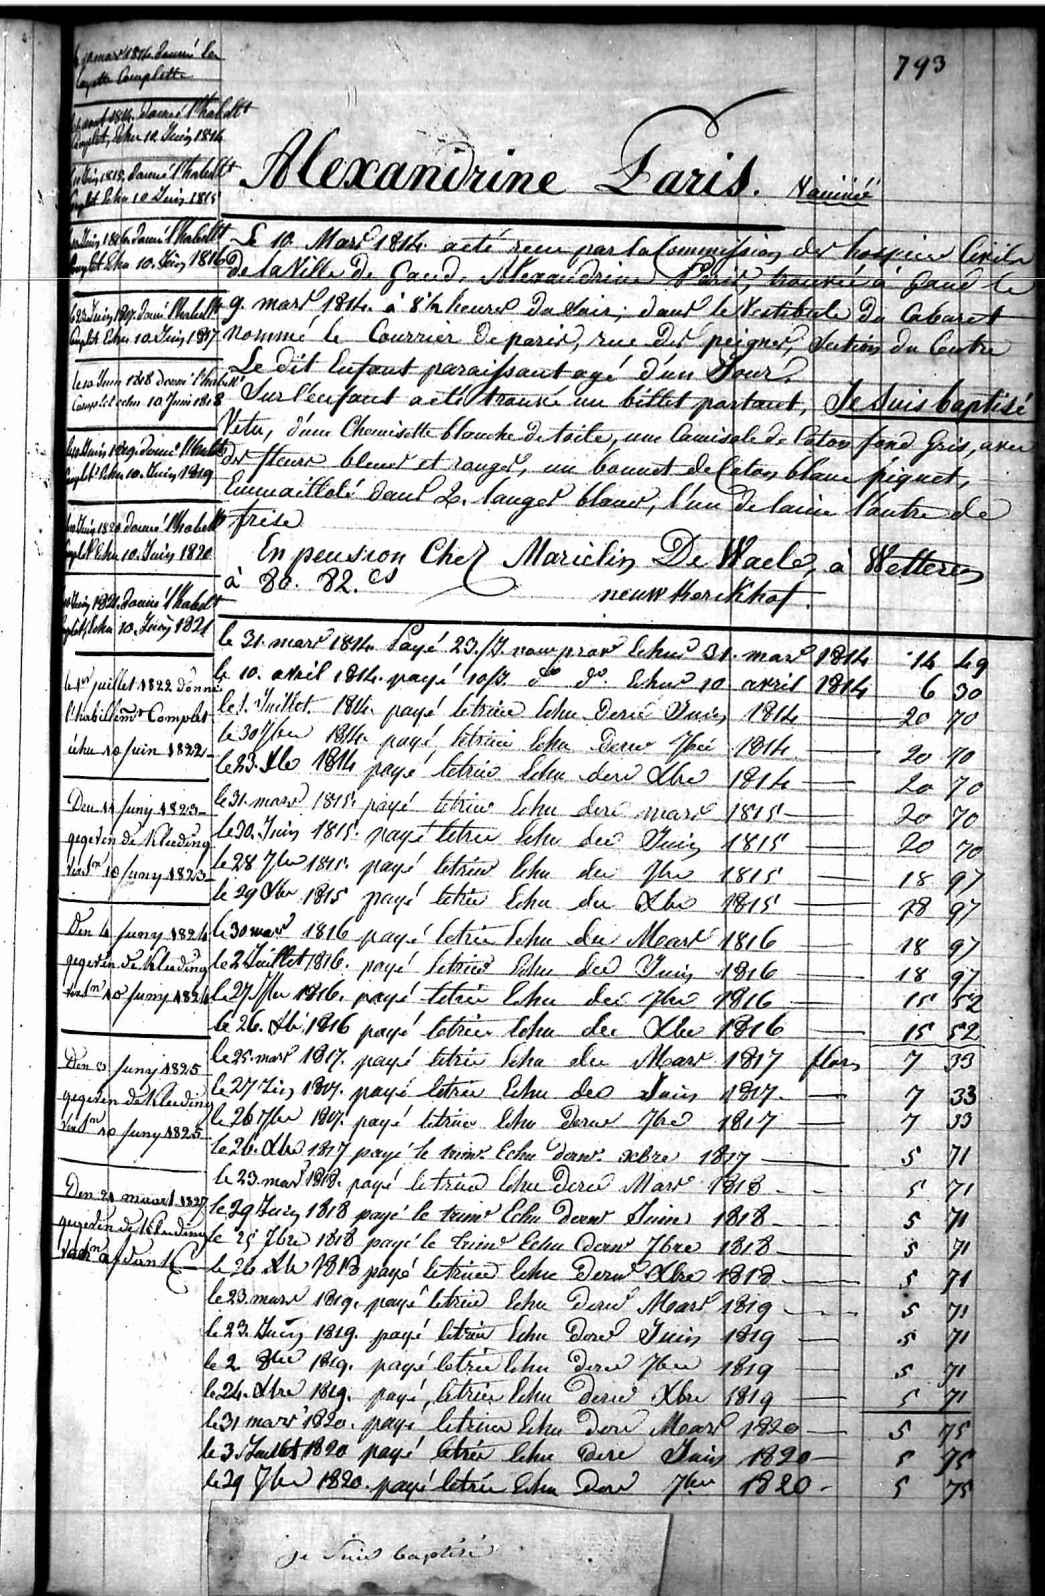 793
Alexandrine Paris. Nominé
Le 10. Mars 1814. a été recue par la Commission des hospices Civils
De la Ville De Gand, Alexandrine Paris, trouvée à Gand le
9. mars 1814. à 8½ heures Du Soir; dans le Vestibule Du Cabaret
nommé le Courrier De paris, rue Des peignes, Section du Centre
Le Dit Enfant paraissant agé d'un Jour.
Sur l'enfant a été trouvé un billet portant, Je Suis baptisé
Vetu, d'une Chemisette blanche De toile, une Camisole de Coton fond Gris, avec
Des fleurs bleues et rouges, un bonnet de Coton blanc piquet,
Emmailloté dans 2. langes blancs, l'un De laine l'autre de
frise
En pension Chez Marie Lin De Waele, à Wetteren
à 80. 82. cs neuw kerckhof.
10 mars 1814 donné la
layette Complette
1814. donné l'habillt
Complet, Echu 10 Juin 1814
Juin 1815. donné l'habillt
Complet Echu 10 Juin 1815
Juin 1816. donné l'habillt
Complet Echu 10. Juin 1816
le 23 Juin 1817. donné l'habillt
Complet Echu 10 Juin 1817
le 10 Juin 1818 donné l'habillt
Complet echu 10 Juin 1818
Juin 1819. donné l'habillt
Complet Echu 10. Juin 1819
Juin 1820. donné l'habillt
Complet Echu 10. Juin 1820
Juin 1821. donné l'habillt
Complet, Echu 10. Juin 1821
le 1er juillet 1822 donné
l'habillemt Complet
échu 10 Juin 1822
Den 11 Juny 1823
gegeven de Kleeding
10 Juny 1823
Den 4 Juny 1824
gegeven de Kleeding
10 Juny 1824
Den 3 Juny 1825
gegeven de Kleeding
10 Juny 1825
Den 21 maart 1827
gegeven de Kleeding
le 31. mars 1814. Payé 23. Echus 31. mars 1814 14 49
le 10. avril 1814. payé 10 do do Echus 10 avril 1814 6 30
le 1. Juillet. 1814. payé le trim Echu Dern Juin 1814 20 70
le 30 7bre 1814. payé le trim Echu Dern 7bre 1814 20 70
le 23. Xbre 1814 payé le trim Echu dern Xbre 1814 20 70
le 31. mars 1815. payé le trim Echu dern mars 1815 20 70
le 30. Juin 1815. payé le trim Echu der Juin 1815 20 70
le 28 7bre 1815. payé le trim Echu der 7bre 1815 18 97
le 29 Xbre 1815 payé le trim Echu der Xbre 1815 18 97
le 30 mars 1816 payé le trim Echu der Mars 1816 18 97
le 2 Juillet 1816. payé le trim Echu der Juin 1816 18 97
le 27 7bre 1816. payé le trim Echu der 7bre 1816 15 52
le 26. Xbre 1816 payé le trim Echu der Xbre 1816 15 52
le 25. mars 1817. payé le trim Echu der Mars 1817 flors 7 33
le 27 Juin 1817. payé le trim Echu der Juin 1817 7 33
le 26 7bre 1817. payé le trim Echu dern 7bre 1817 7 33
le 26. Xbre 1817 payé le trim. Echu dern. xbre 1817 5 71
le 23. mars 1818. payé le trim Echu Dern Mars 1818 5 71
le 29 Juin 1818 payé le trimr Echu dern Juin 1818 5 71
le 25 7bre 1818 payé le trimr Echu dern 7bre 1818 5 71
le 26 Xbre 1818 payé le trim Echu Dern Xbre 1818 5 71
le 23. mars 1819. payé le trim Echu dern Mars 1819 5 71
le 23. Juin 1819. payé le trim Echu dern Juin 1819 5 71
le 2 8bre 1819. payé le trim Echu dern 7bre 1819 5 71
le 24. Xbre 1819. payé, le trim Echu dern Xbre 1819 5 71
le 31 mars 1820. payé le trim Echu dern Mars 1820 5 75
le 3 Juillet 1820 payé le trim Echu dern Juin 1820 5 75
le 29 7bre 1820. payé le trim Echu dern 7bre 1820 5 75
je suis baptisé